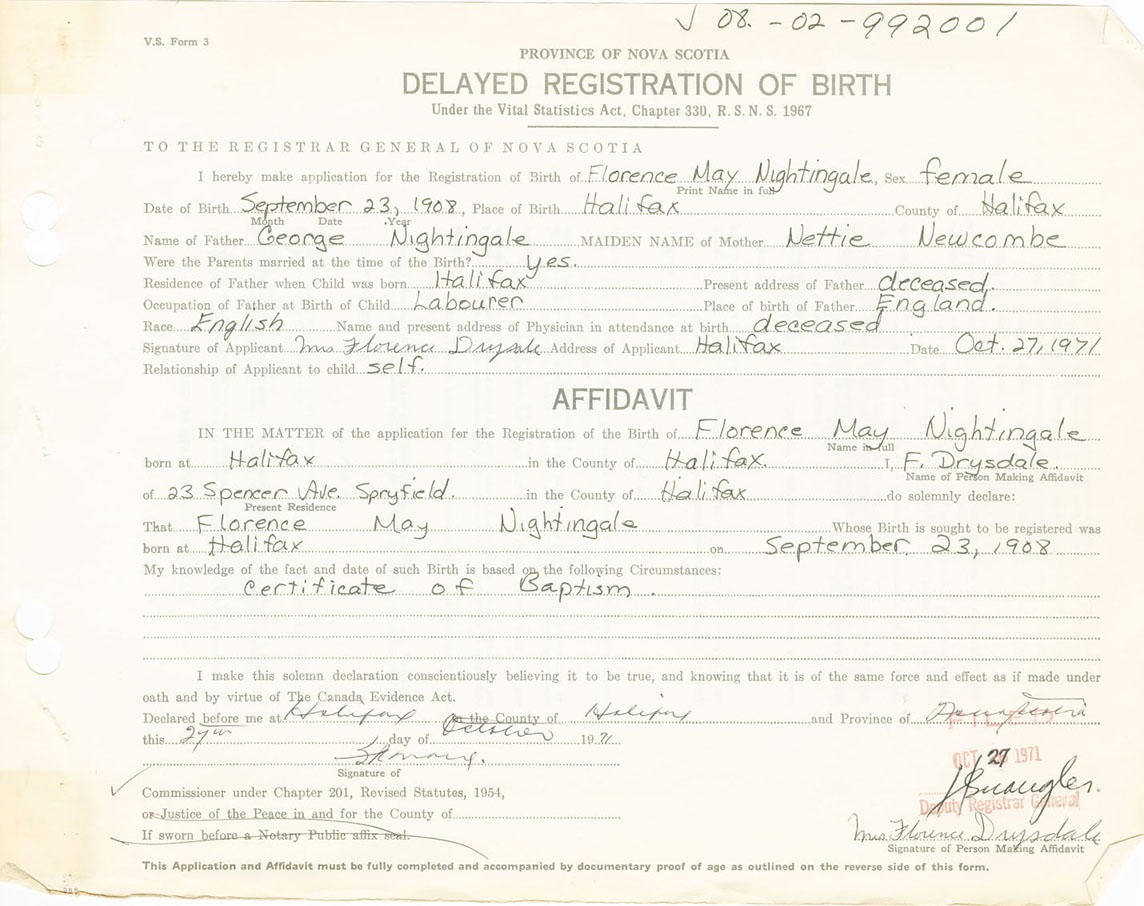 √ 08.-02-992001
V.S. Form 3
PROVINCE OF NOVA SCOTIA
DELAYED REGISTRATION OF BIRTH
Under the Vital Statistics Act, Chapter 330, R.S.N.S. 1967
TO THE REGISTRAR GENERAL OF NOVA SCOTIA
I hereby make application for the Registration of Birth of Florence May Nightingale, Sex female
Print Name in full
Date of Birth September 23, 1908, Place of Birth Halifax County of Halifax
Month Date Year
Name of Father George Nightingale MAIDEN NAME of Mother Nettie Newcombe
Were the Parents married at the time of the Birth? yes.
Residence of Father when Child was born Halifax Present address of Father deceased.
Occupation of Father at Birth of Child Labourer Place of birth of Father England.
Race English Name and present address of Physician in attendance at birth deceased
Signature of Applicant Mrs Florence Drysale Address of Applicant Halifax Date Oct. 27, 1971
Relationship of Applicant to child self.
AFFIDAVIT
IN THE MATTER of the application for the Registration of the Birth of Florence May Nightingale
Name in full
born at Halifax in the County of Halifax. I, F. Drysdale.
Name of Person Making Affidavit
of 23 Spencer Ave. Spryfield. in the County of Halifax do solemnly declare:
Present Residence
That Florence May Nightingale Whose Birth is sought to be registered was
born at Halifax on September 23, 1908
My knowledge of the fact and date of such Birth is based on the following Circumstances:
Certificate of Baptism.
I make this solemn declaration conscientiously believing it to be true, and knowing that it is of the same force and effect as if made under
oath and by virtue of The Canada Evidence Act.
Declared before me at Halifax in the County of Halifax and Province of Nova Scotia
FILED
this 27th day of October 1971
OCT 27 1971
Signature of
Commissioner under Chapter 201, Revised Statutes, 1954,
Deputy Registrar General
or Justice of the Peace in and for the County of
Mrs. Florence Drysdale
If sworn before a Notary Public affix seal.
Signature of Person Making Affidavit
This Application and Affidavit must be fully completed and accompanied by documentary proof of age as outlined on the reverse side of this form.